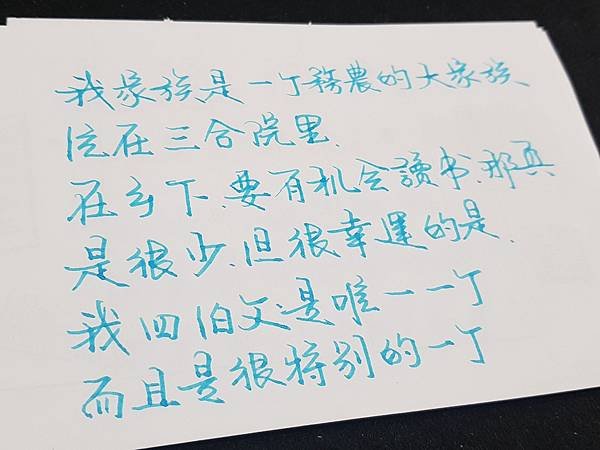 我家族是一个務農的大家族
住在三合院里.
在乡下.要有机会讀书.那真
是很少.但很幸運的是.
我四伯父是唯一一个
而且是很特别的一个